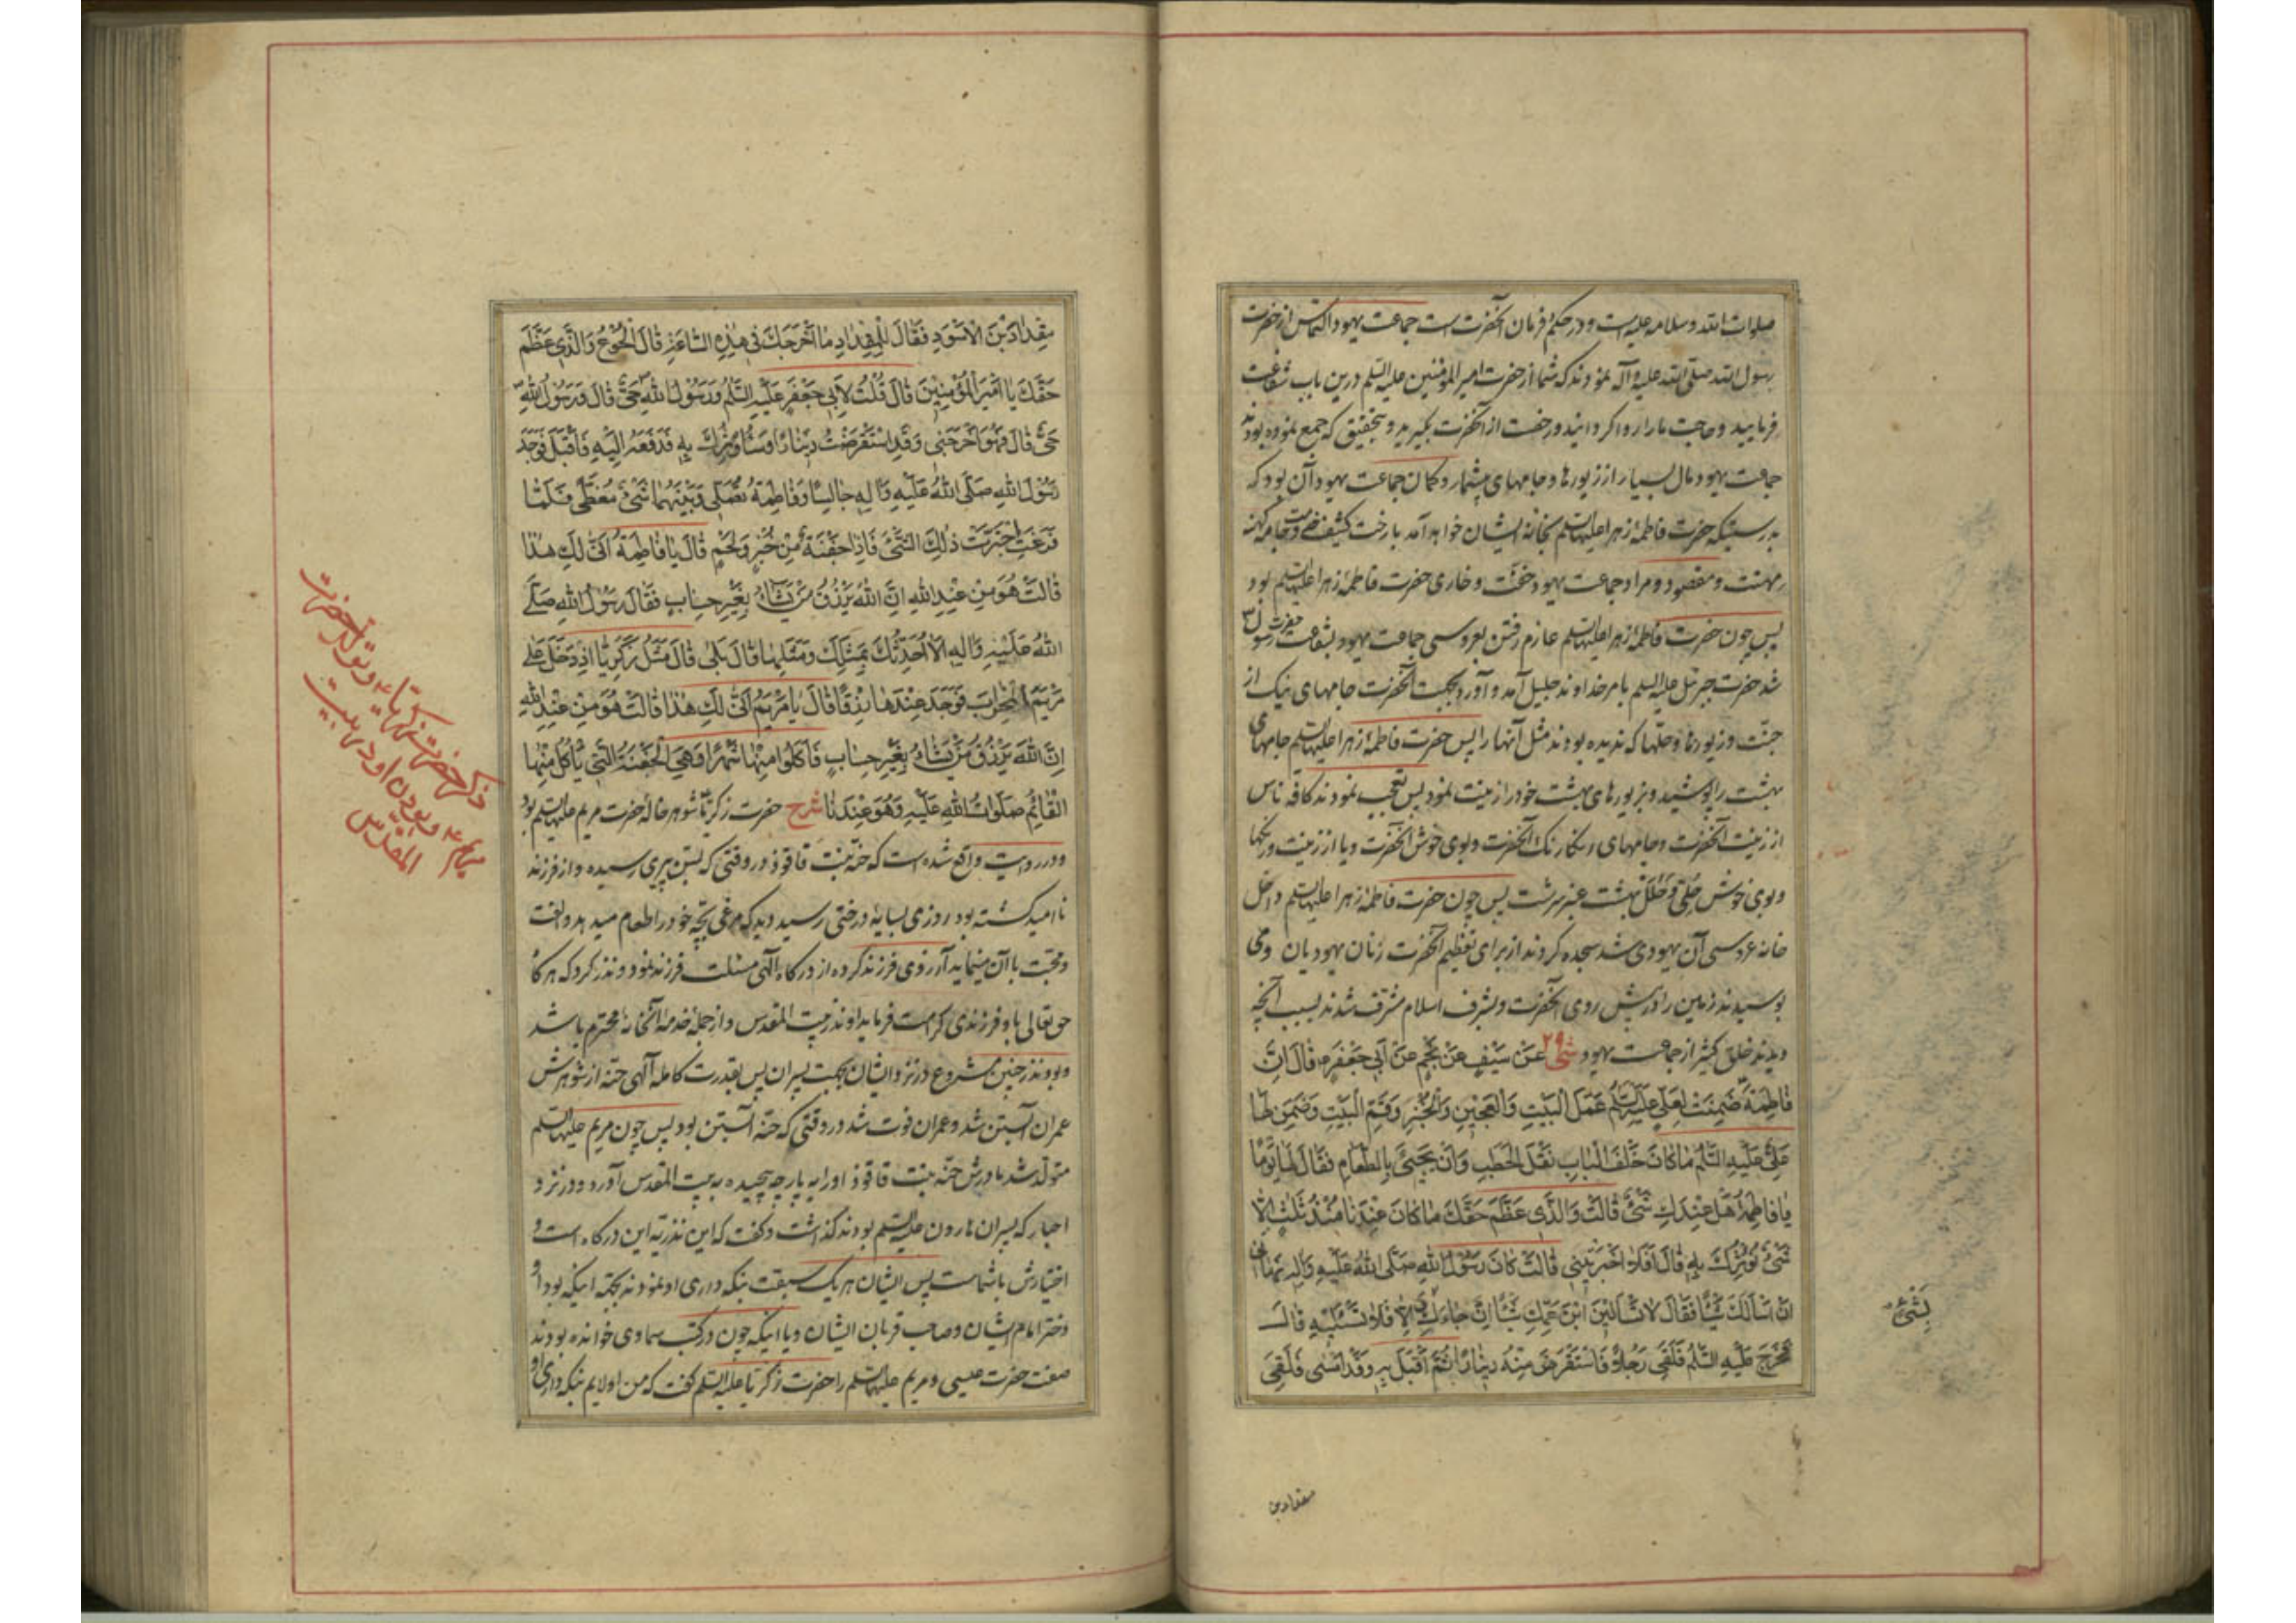 صلوات الله وسلامه علیه است و در حکم و فرمان آنحضرت است جماعت یهود التماس از حضرت
رسول الله صلی الله علیه وآله نمودند که شما از حضرت امیر المؤمنین علیه السلم درین باب شفاعت
فرمایید و حاجت ما را روا کردانید و رخصت از آنحضرت بگیرید و بتحقیق که جمع نموده بودند
جماعت یهود مال بسیار از زیورها و جامهای بیشمار و کمان جماعت یهود آن بود که
بدرستیکه حضرت فاطمهٔ زهرا علیها السلم بخانهٔ ایشان خواهد آمد با رخت کثیف وجامه کهنه
مهنت و مقصود و مراد جماعت یهود خفّت و خاری حضرت فاطمهٔ زهرا علیها السلم بود
پس چون حضرت فاطمهٔ زهرا علیها السلم عازم رفتن بعروسی جماعت یهود بشفاعت حضرت رسول
شد حضرت جبرئیل علیه السلم بامر خداوند جلیل آمد و آورد بجهت آنحضرت جامهای نیک از
جنّت و زیورها و حلّها که ندیده بودند مثل آنها را پس حضرت فاطمهٔ زهرا علیها السلم جامهای
بهشت را پوشید و بزیورهای بهشت خود را زینت نمود پس تعجّب نمودند کافه ناس
از زینت آنحضرت و جامهای رنکارنک آنحضرت و بوی خوش آنحضرت و یا از زینت و رنکها
و بوی خوش حلی و حلل بهشت عنبر سرشت پس چون حضرت فاطمهٔ زهرا علیها السلم داخل
خانه عروسی آن یهودی شد سجده کردند از برای تعظیم آنحضرت زنان یهودیان و می
بوسیدند زمین را در پیش روی آنحضرت و بشرف اسلام مشرّف شدند بسبب آنچه
دیدند خلق کثیر از جماعت یهود شی ۲۹ عَنْ سَیْفٍ عَنْ نَجْمٍ عَنْ اَبی جَعْفَرٍ قالَ اِنَّ
فاطِمَةَ ضَمِنَتْ لِعَلِیٍّ عَلَیْهِ السَّلٰمُ عَمَلَ الْبَیْتِ وَالْعَجینِ وَالْخُبْزِ وَقَمَّ الْبَیْتِ وَضَمِنَ لَها
عَلِیٌّ عَلَیْهِ السَّلٰمُ ما کانَ خَلْفَ الْبابِ نَقْلَ الْحَطَبِ وَاَنْ یَجیئَ بِالطَّعامِ فَقالَ لَها یَوْمًا
یا فاطِمَةُ هَلْ عِنْدَكِ شَیْءٌ قالَتْ وَالَّذی عَظَّمَ حَقَّكَ ما کانَ عِنْدَنا مُنْذُ ثَلٰثٍ اِلّا
شَیْءٌ نُؤْثِرُكَ بِهِ قالَ اَفَلا اَخْبَرْتِنی قالَتْ کانَ رَسُولُ اللهِ صَلَّی اللهُ عَلَیْهِ وَالِهِ نَهانی
اَنْ اَسْاَلَكَ شَیْئًا فَقالَ لا تَسْاَلینَ ابْنَ عَمِّكِ شَیْئًا اِنْ جاءَكِ وَاِلّا فَلا تَسْئَلیهِ قالَ
فَخَرَجَ عَلَیْهِ السَّلٰمُ فَلَقِیَ رَجُلًا فَاسْتَقْرَضَ مِنْهُ دینارًا ثُمَّ اَقْبَلَ بِهِ وَقَدْ اَمْسی فَلَقِیَ
بِشَیْءٍ
مقداد بن
مِقْدادَ بْنَ الْاَسْوَدِ فَقالَ لِلْمِقْدادِ ما اَخْرَجَكَ فی هٰذِهِ السّاعَةِ قالَ الْجُوعُ وَالَّذی عَظَّمَ
حَقَّكَ یا اَمیرَ الْمُؤْمِنینَ قالَ قُلْتُ لِاَبی جَعْفَرٍ عَلَیْهِ السَّلٰمُ وَرَسُولُ اللهِ حَیٌّ قالَ وَرَسُولُ اللهِ
حَیٌّ قالَ فَهُوَ اَخْرَجَنی وَقَدِ اسْتَقْرَضْتُ دینارًا وَسَاُوثِرُكَ بِهِ فَدَفَعَهُ اِلَیْهِ فَاَقْبَلَ فَوَجَدَ
رَسُولَ اللهِ صَلَّی اللهُ عَلَیْهِ وَالِهِ جالِسًا وَفاطِمَةُ تُصَلّی وَبَیْنَهُما شَیْءٌ مُغَطًّی فَلَمّا
فَرَغَتِ اجْتَرَّتْ ذٰلِكَ الشَّیْءَ فَاِذا جَفْنَةٌ مِنْ خُبْزٍ وَلَحْمٍ قالَ یا فاطِمَةُ اَنّی لَكِ هٰذا
قالَتْ هُوَ مِنْ عِنْدِ اللهِ اِنَّ اللهَ یَرْزُقُ مَنْ یَشاءُ بِغَیْرِ حِسابٍ فَقالَ رَسُولُ اللهِ صَلَّی
اللهُ عَلَیْهِ وَالِهِ اَلا اُحَدِّثُكَ بِمَثَلِكَ وَمَثَلِها قالَ بَلی قالَ مَثَلُ زَکَرِیّا اِذْ دَخَلَ عَلی
مَرْیَمَ الْمِحْرابَ فَوَجَدَ عِنْدَها رِزْقًا قالَ یا مَرْیَمُ اَنّی لَكِ هٰذا قالَتْ هُوَ مِنْ عِنْدِ اللهِ
اِنَّ اللهَ یَرْزُقُ مَنْ یَشاءُ بِغَیْرِ حِسابٍ فَاَکَلُوا مِنْها شَهْرًا وَهِیَ الْجَفْنَةُ الَّتی یَاْکُلُ مِنْها
الْقائِمُ صَلَواتُ اللهِ عَلَیْهِ وَهُوَ عِنْدَنا شرح حضرت زکریّا شوهر خالهٔ حضرت مریم علیها السلم بود
و در روایت واقع شده است که حنّه بنت قاقوذ در وقتی که بسنّ پیری رسیده و از فرزند
ناامید کشته بود روزی بسایهٔ درختی رسید دید که مرغی بچّه خود را طعام میدهد و الفت
و محبّت با آن مینماید آرزوی فرزند کرده از درکاه آلهی مسئلت فرزند نمود و نذر کرد که هرکاه
حق تعالی باو فرزندی کرامت فرماید او نذر بیت المقدس و از جملهٔ خدمهٔ آنخانهٔ محترم باشد
و بود نذر چنین مشروع در نزد ایشان بجهت پسران پس بقدرت کاملهٔ آلهی حنّه از شوهرش
عمران آبستن شد و عمران فوت شد در وقتی که حنّه آبستن بود پس چون مریم علیها السلم
متولّد شد مادرش حنّه بنت قاقوذ او را به پارچه پیچیده به بیت المقدس آورد و در نزد
احبار که پسران هارون علیه السلم بودند کذاشت و کفت که این نذریه این درکاه است و
اختیارش با شماست پس ایشان هریک سبقت بنکه داری او نمودند بجهة اینکه بود او
دختر امام ایشان و صاحب قربان ایشان و یا اینکه چون در کتب سماوی خوانده بودند
صفت حضرت عیسی و مریم علیهما السلم را حضرت زکریّا علیه السلم کفت که من اولایم بنکه داری او
ذکر حضرت زکریّا و تولد حضرت
مریم و بودن او در بیت
المقدّس